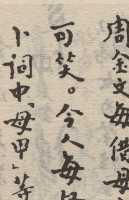 周金文每借母
可笑。今人每
卜词中、母甲」等